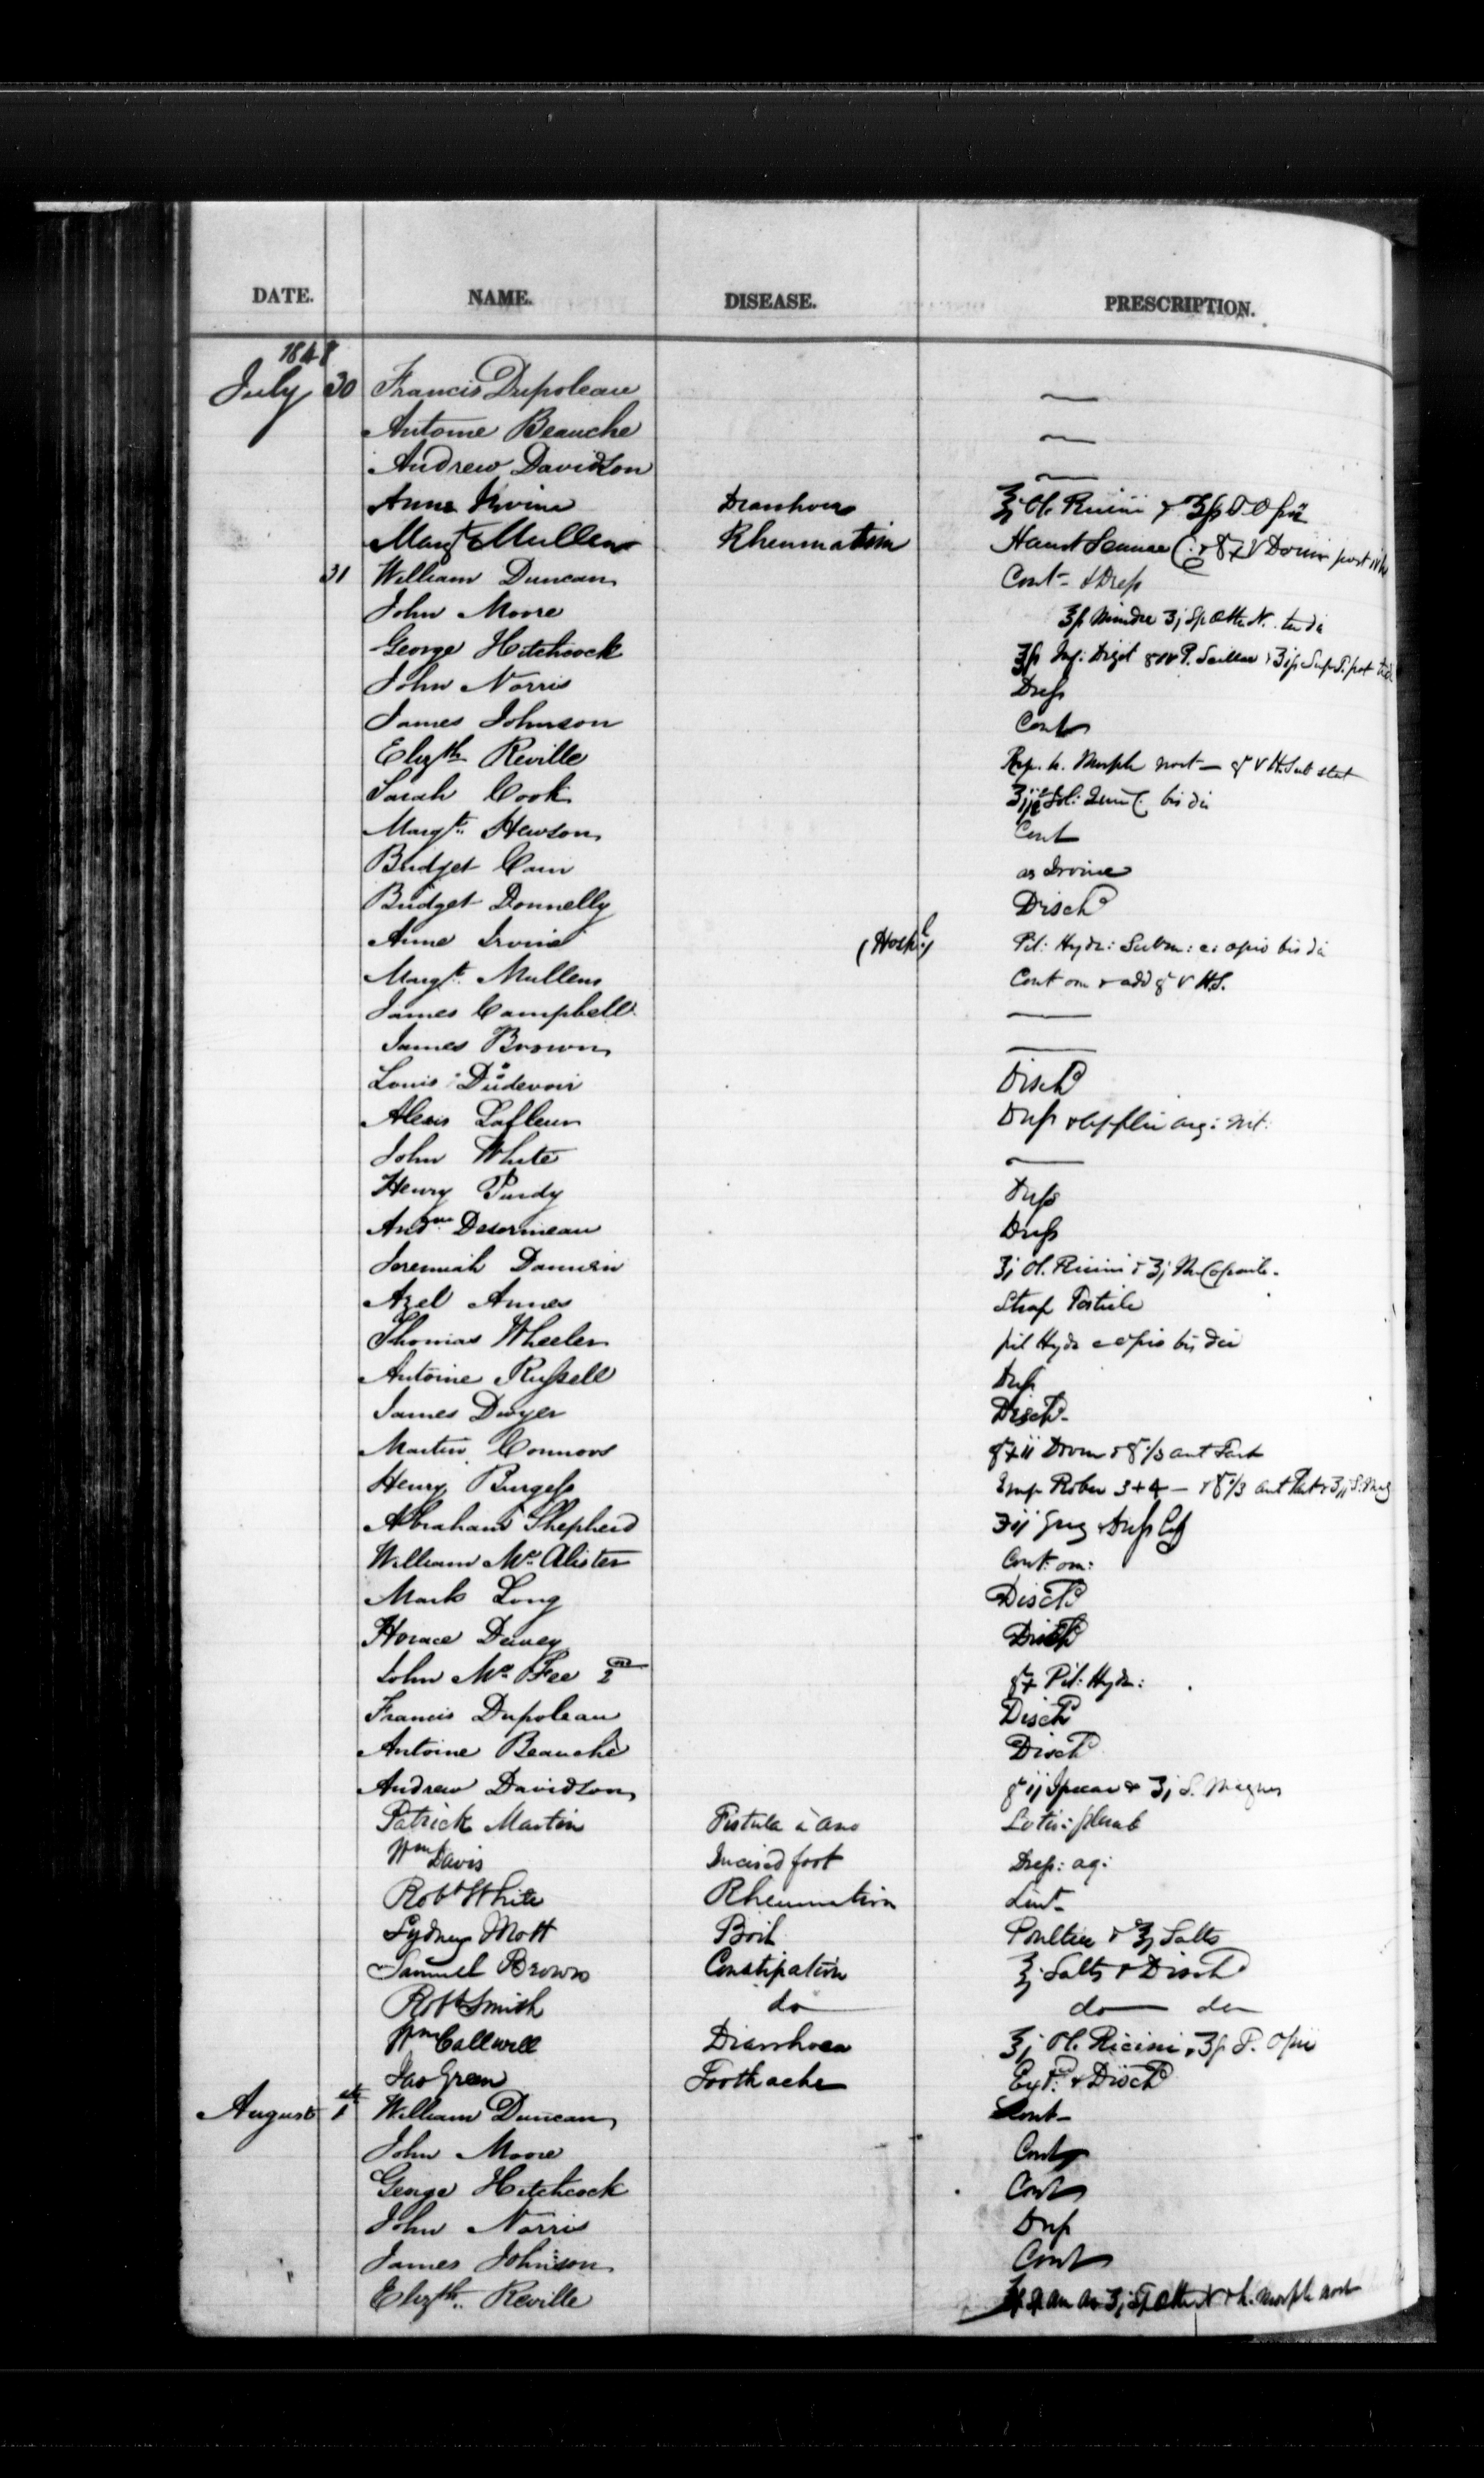 DATE. NAME. DISEASE. PRESCRIPTION.
1848
July 30 Francis Dupoleau —
Antoine Beauche —
Andrew Davidson —
Anne Irvine Diarrhoea ℥j Ol. Ricini & ʒß T. Opii
Margt Mullen Rheumatism Haust Sennae
31 William Duncan Cont- & Dress
John Moore
George Hitchcock
John Norris Dress
James Johnson Cont
Elizth Reville Rep. h. Morph noct —
Sarah Cook bis die
Margt. Hewson Cont
Bridget Cain as Irvine
Bridget Donnelly Dischd
Anne Irvine (Hospl) Pil: Hydr: Subm: c: opio bis die
Margt. Mullens Cont om & add g V H.S.
James Campbell —
James Brown —
Louis Dudevoir Dischd
Alexis Lafleur Dress & applic arg: nit:
John White —
Henry Purdy Dress
Andw Desormeau Dress
Jeremiah ʒj Ol. Ricini & ʒj
Azel Annes Strap Testicle
Thomas Wheeler pil Hydr c opio bis die
Antoine Russell Dress
James Dwyer Dischd-
Martin Connors
Henry Burgess
Abraham Shepherd
William Mc. Alister Cont: om:
Mark Long Dischd
Horace Dewey Dischd
John Mc. Fee 2nd gr x Pil: Hydr:
Francis Dupoleau Dischd
Antoine Beauche Dischd
Andrew Davidson gr ij Ipecac & ʒj S. Magnes
Patrick Martin Fistula in Ano Lotio: plumb
Wm Davis Incised foot Dress: aq:
Robt White Rheumatism Lint-
Sydney Mott Boil Poultice & ℥j Salts
Samuel Brown Constipation ℥j Salts & Dischd
Robt Smith do do — do
Wm Callwell Diarrhoea ℥j Ol. Ricini & ʒß T. Opii
Jas Green Toothache Extd. & Dischd
August 1st William Duncan Cont-
John Moore Cont
George Hitchcock Cont
John Norris Dress
James Johnson Cont
Elizth. Reville